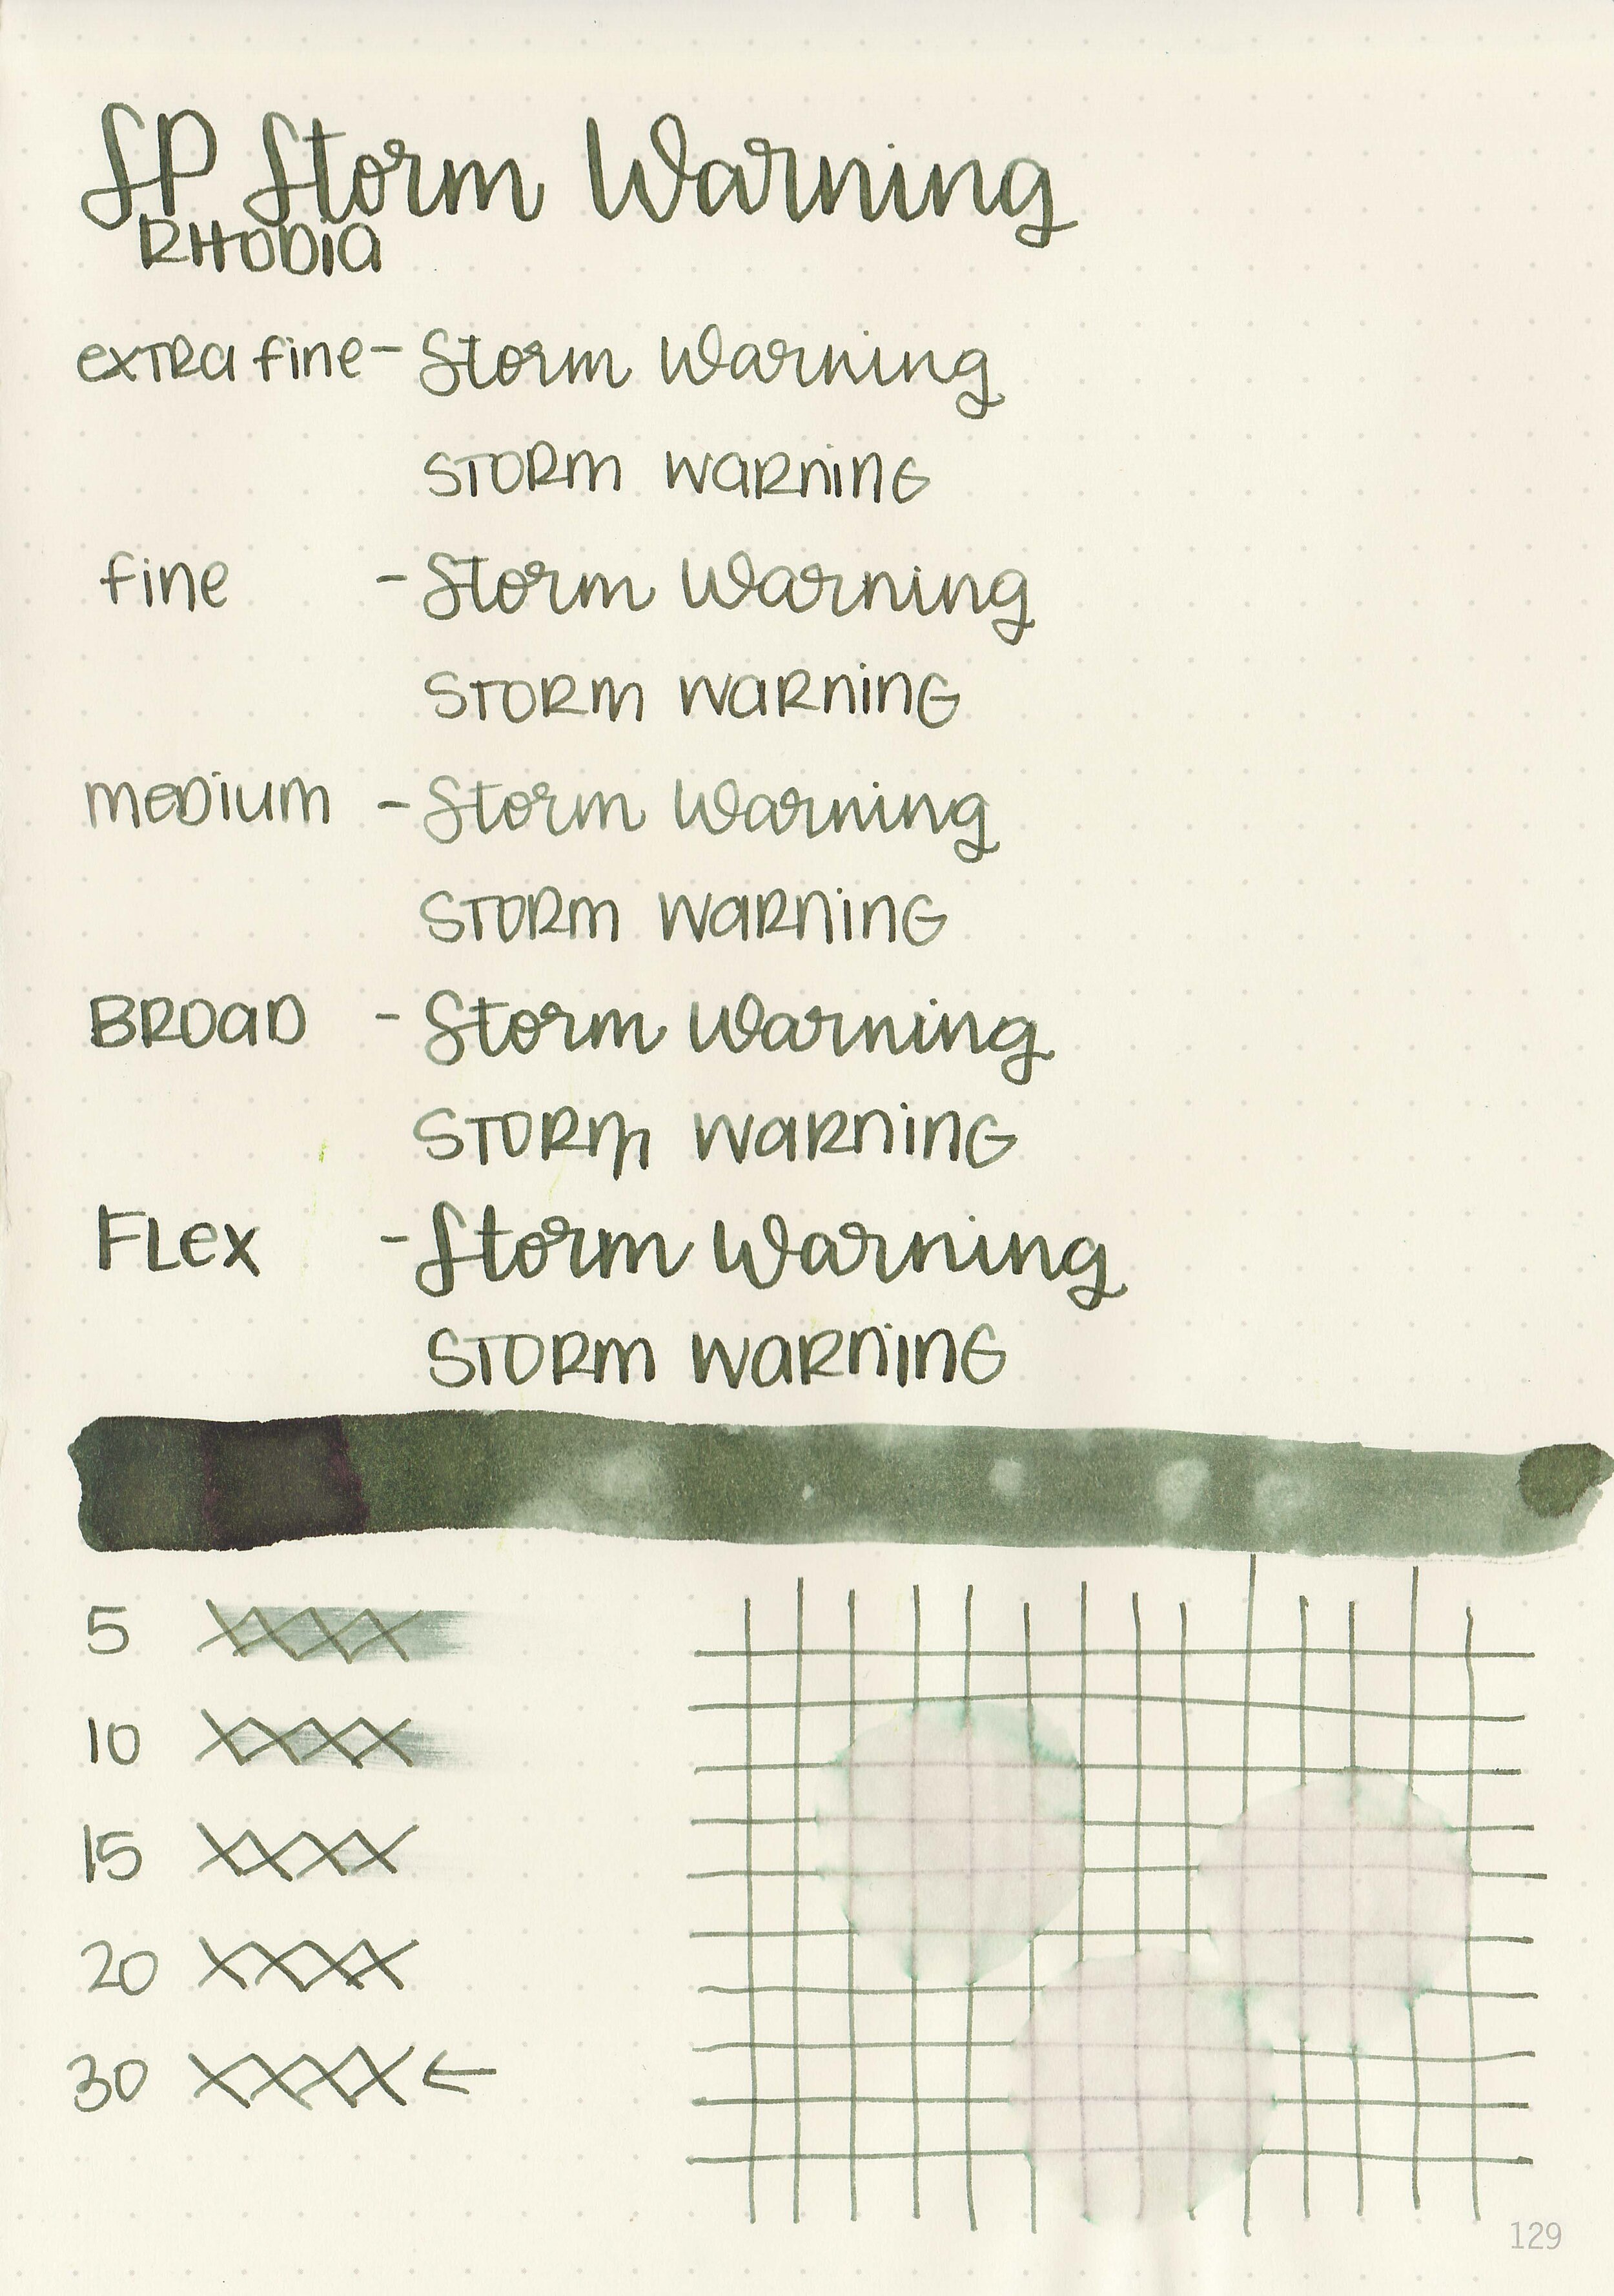 SP Storm Warning
RHODIA
extra fine - Storm Warning
STORM WARNING
fine - Storm Warning
STORM WARNING
medium - Storm Warning
STORM WARNING
BROAD - Storm Warning
STORM WARNING
FLex - Storm Warning
STORM WARNING
5 XXXX
10 XXXX
15 XXXX
20 XXXX
30 XXXX ←
129